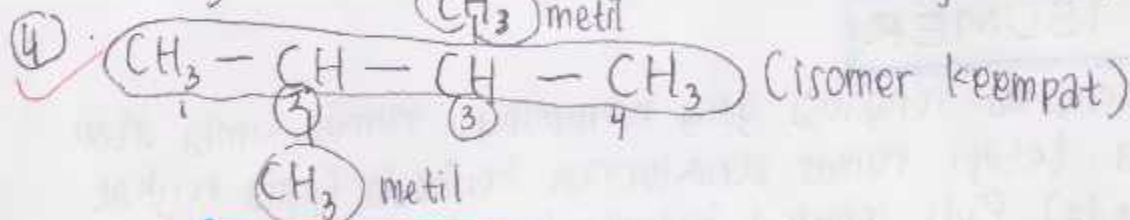 CH3 metil
④. CH3 – CH – CH – CH3 (isomer keempat)
1 2 3 4
CH3 metil